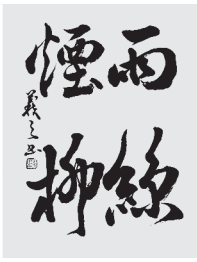 雨絲
煙柳
義之書